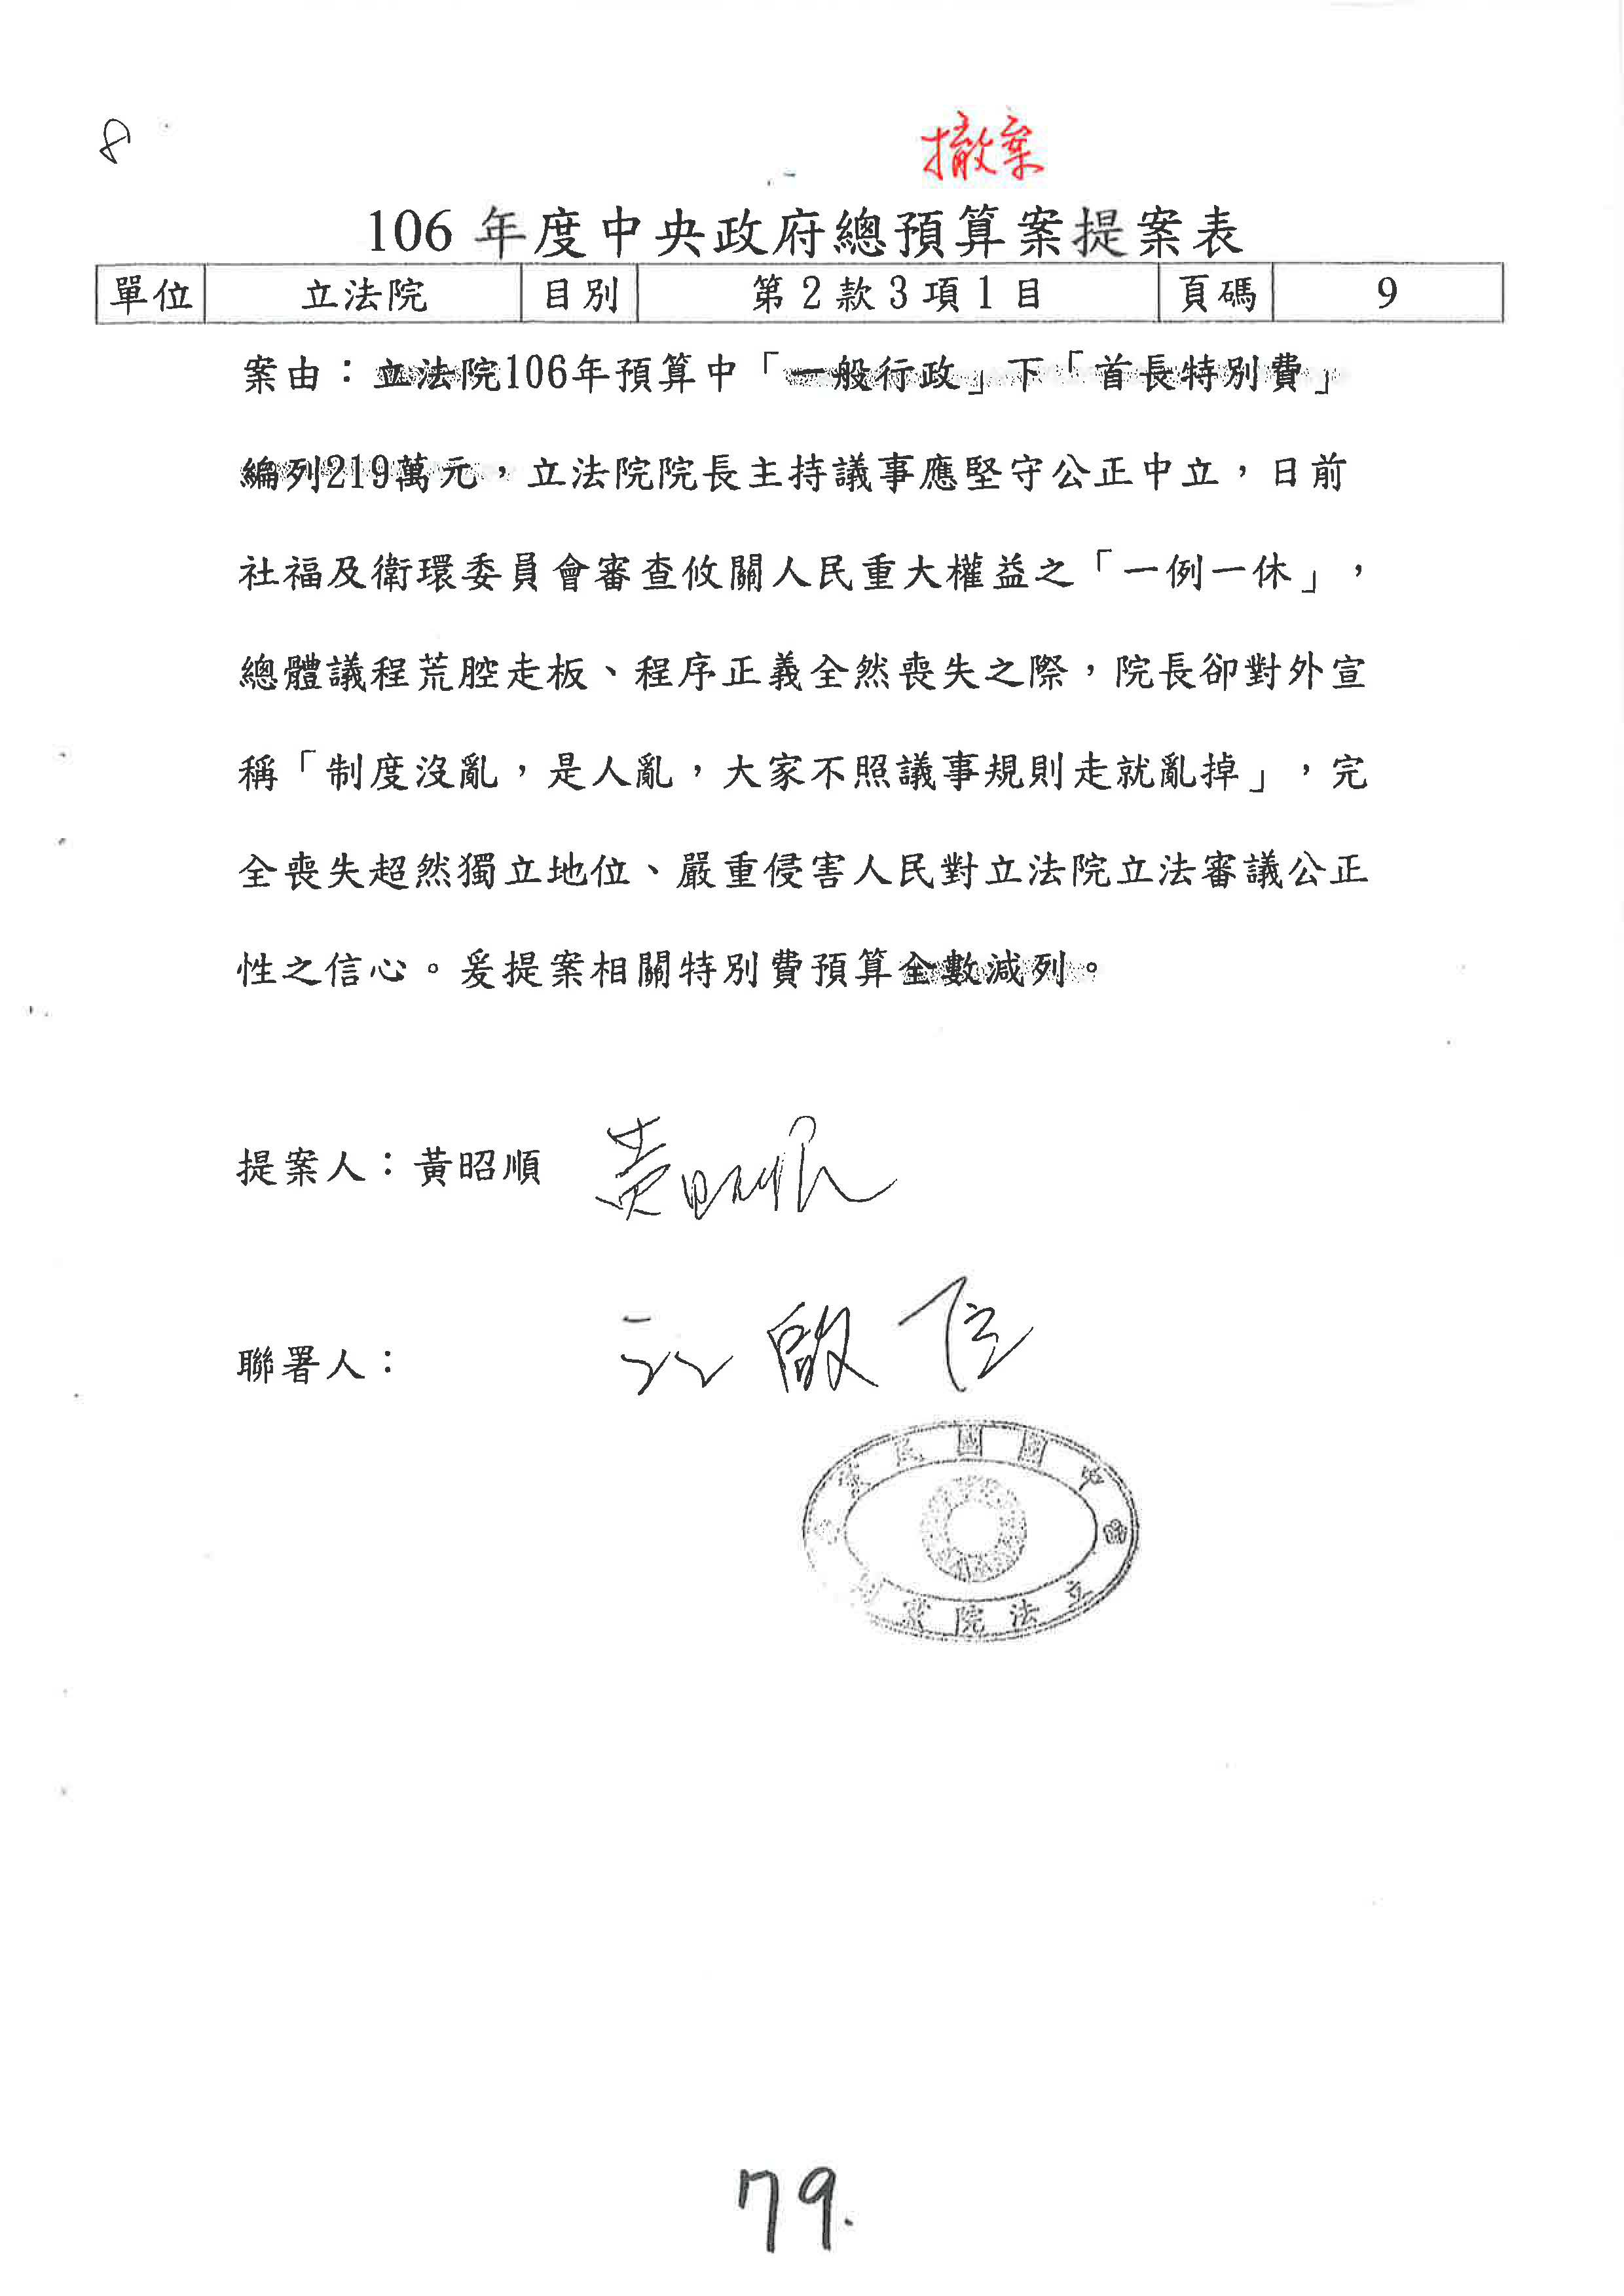 8
撤案
106年度中央政府總預算案提案表
單位 立法院 目別 第2款3項1目 頁碼 9
案由：立法院106年預算中「一般行政」下「首長特別費」
編列219萬元，立法院院長主持議事應堅守公正中立，日前
社福及衛環委員會審查攸關人民重大權益之「一例一休」，
總體議程荒腔走板、程序正義全然喪失之際，院長卻對外宣
稱「制度沒亂，是人亂，大家不照議事規則走就亂掉」，完
全喪失超然獨立地位、嚴重侵害人民對立法院立法審議公正
性之信心。爰提案相關特別費預算全數減列。
提案人：黃昭順 黃昭順
聯署人： 江啟臣
中國國民黨
立法院黨
79.